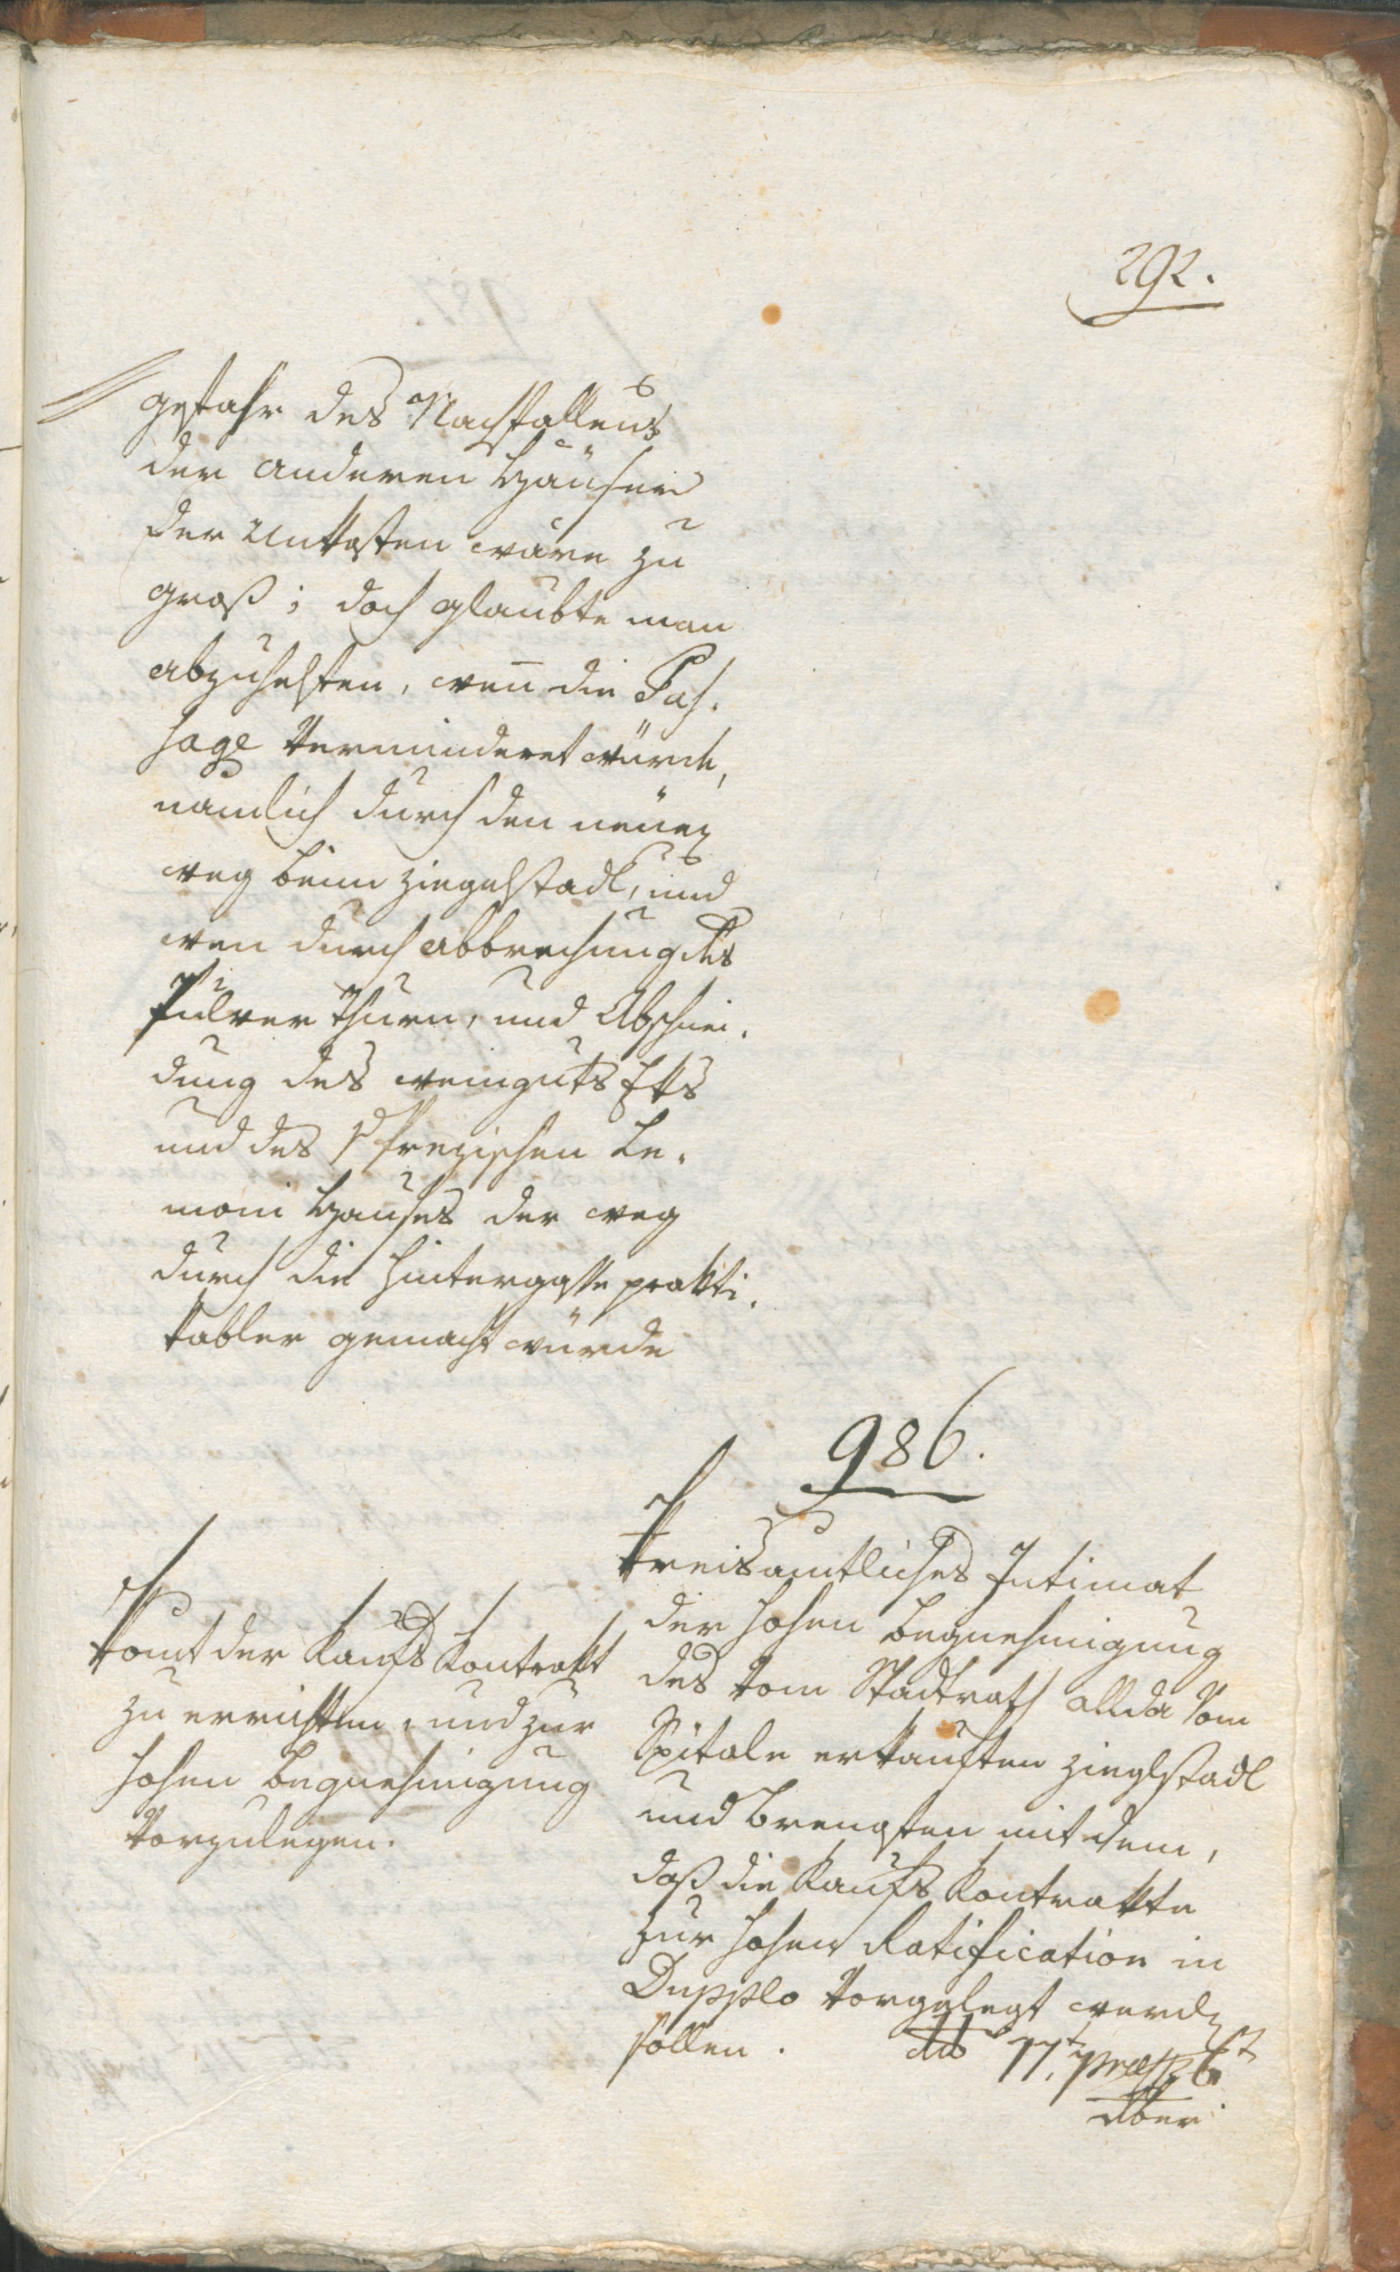 292.
gefahr des Nachfallens
der anderen Häuser
der Unkosten wäre zu
groß; doch glaubte man
abzuhelfen, weñ die Pas-
sage verminderet würde,
nämlich durch den neuen
weg beim ziegelstadl, und
wen durch abbrechung des
Pulver Thurn, und Abschnei-
dung des weinguts Eks
und des Pfrezischen Le-
moni Hauses der weg
durch die hintergasse prakti-
kabler gemacht würde
986.
Kreisamtliches Intimat
der hohen begnehmigung
des vom Stadtrath allda vom
Spitale erkauften zieglstadl
und brengsten mit dem,
daß die Kaufs Kontrakte
zur hohen Ratification in
Dupplo vorgelegt werden
sollen. ddo 17t praes 6t
xber
Komt der Kaufs Kontrakt
zu errichten, und zur
hohen begnehmigung
vorzulegen.